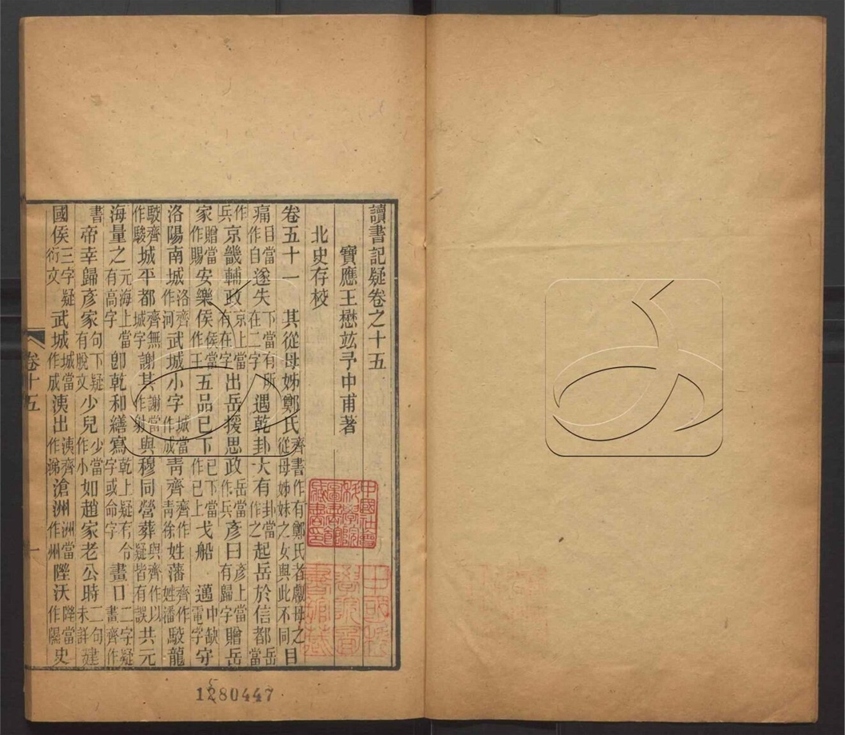 讀書記疑卷之十五
寶應王懋竑予中甫著
北史存校
卷五十一 其從母姊鄭氏齊書作有鄭氏者獻母之從母姊妹之女與此不同目
痛目當作自遂失下當有所在二字遇乾卦大有卦當作之起岳於信都岳當作
兵京畿輔政京上當有在字出岳援思政岳當作兵彥曰彥上當有歸字贈岳
家贈當作賜安樂侯侯當作王五品已下已下當作已上戈船 適中缺電字守
洛陽南城洛齊作河武城小字城當作成靑齊齊作靑徐姓藩齊作姓潘駮龍
駮齊作駿城平都齊無城字謝其謝當作射與穆同營葬與齊作以疑皆有誤共元
海量之元海上當有高字卽乾和繕寫乾上疑有令字或命字畫口二字疑畫齊作
書帝幸歸彥家句下疑有脫文少兒少當作小如趙家老公時二句未詳建
國侯三字疑衍文武城城當作成洟出洟齊作涕滄洲洲當作州陞沃陞當作陽史
卷十五
一
1280447